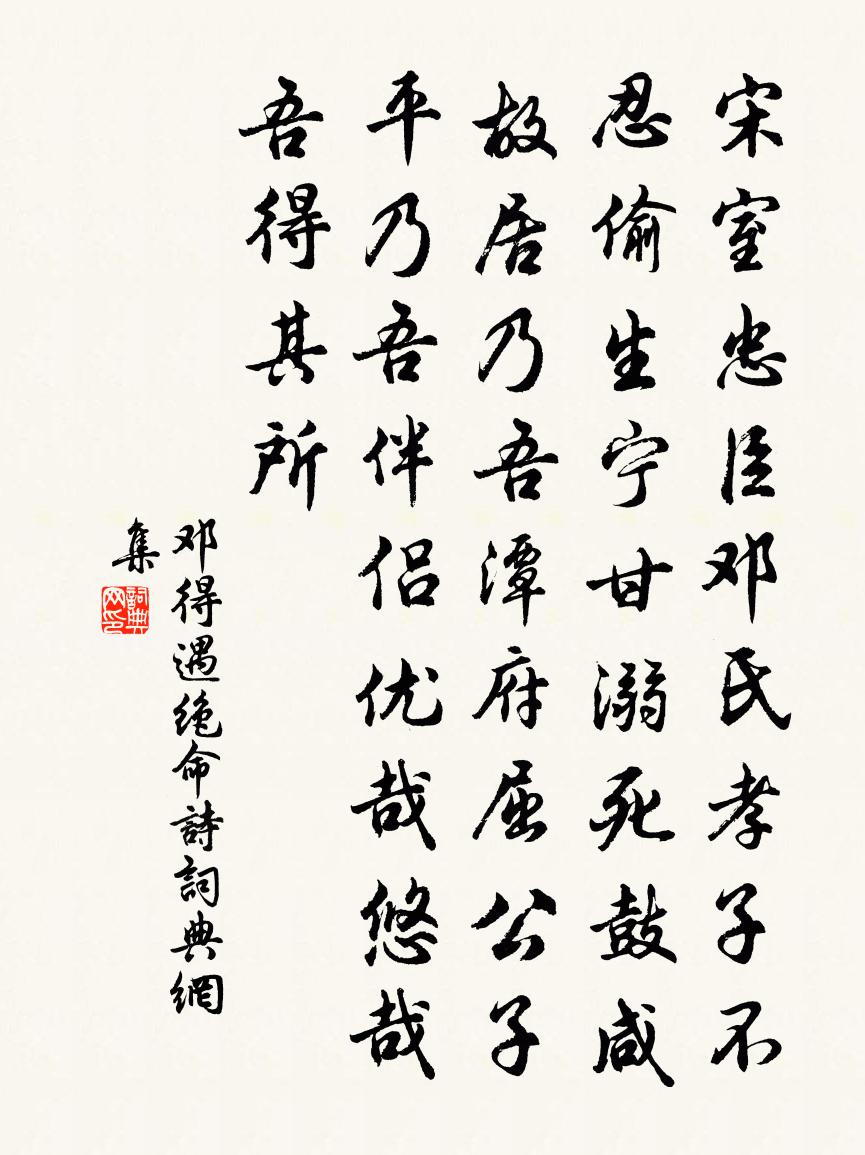 宋室忠臣邓氏孝子不
忍偷生宁甘溺死鼓咸
故居乃吾潭府屈公子
平乃吾伴侣优哉悠哉
吾得其所
邓得遇绝命詩詞典網
集
詞典网印